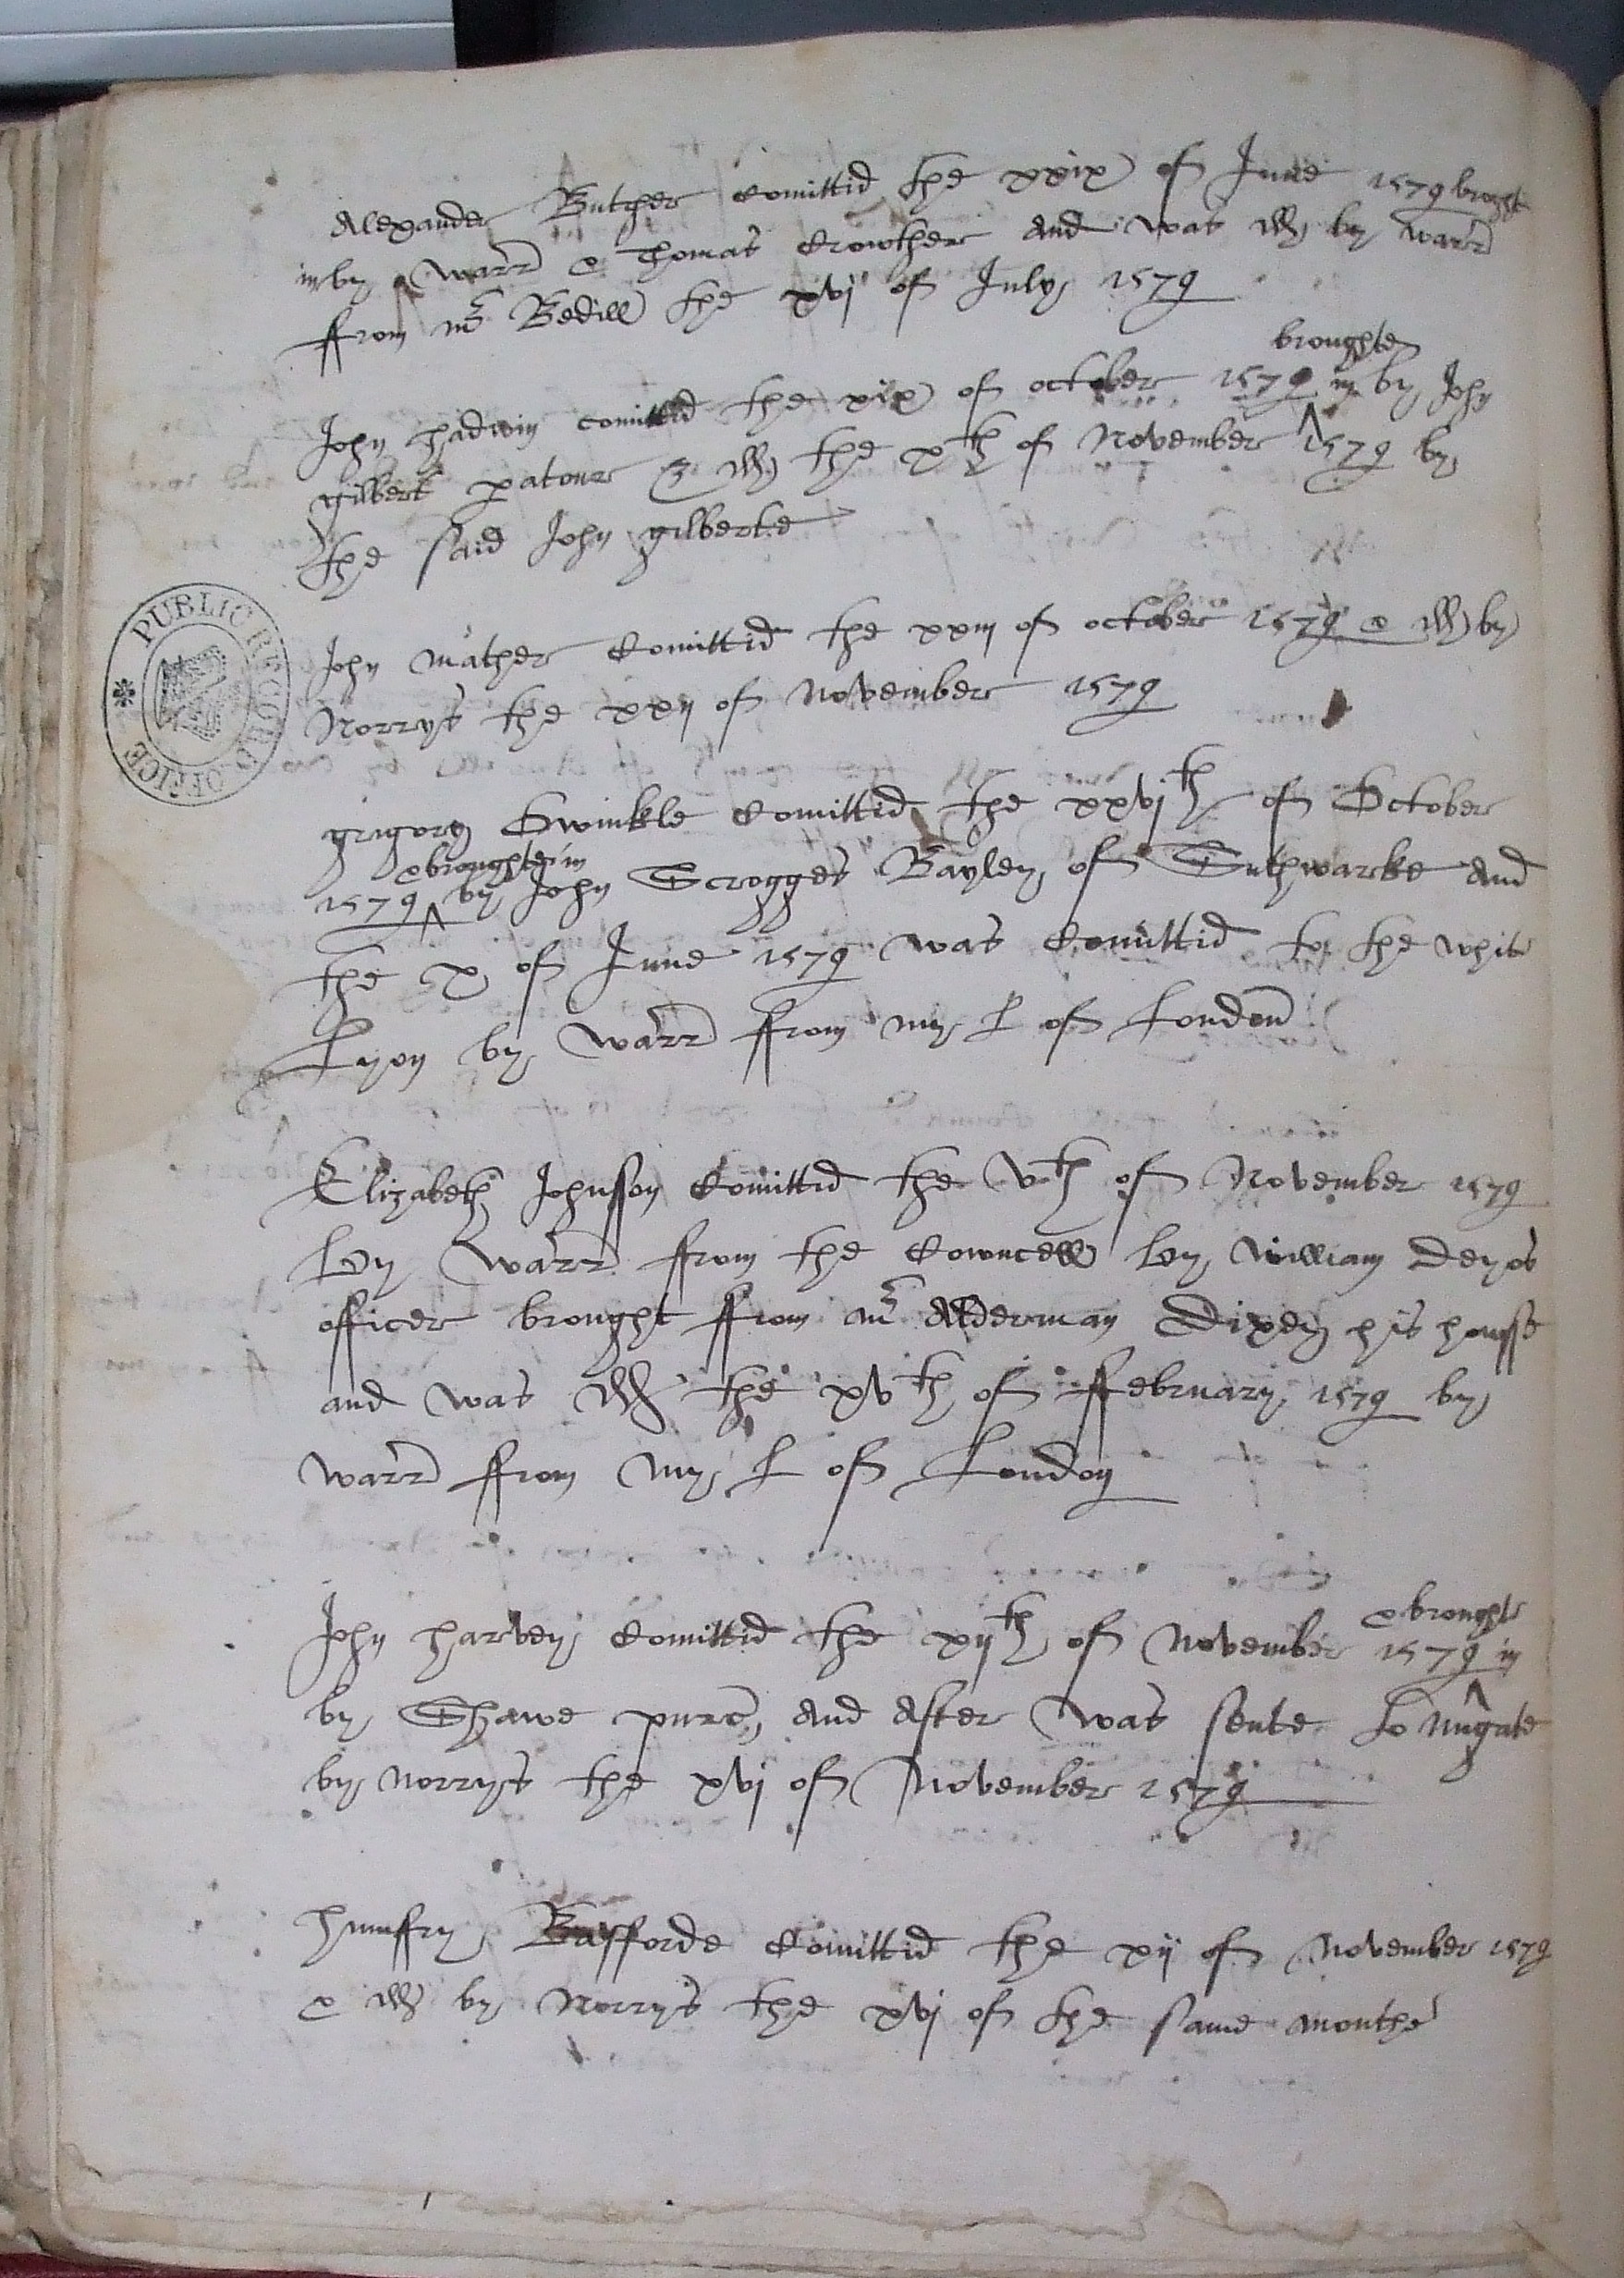 Alexander Butcher Comittid the xxix of June 1579 broght
in by warr & Thomas Crowther and was dd by warr
ffrom mr Bedill the xvj of July 1579
broughte
John hadwin comittid the xix of october 1579 in by John
gilbert & dd the xth of November 1579 by
the said John gilberte
PUBLIC RECORD OFFICE
John mather Comittid the xxiij of october 1579 & dd by
Norrys the xxij of November 1579
grigory Swinkle Comittid the xxvjth of October
& broughte in
1579 by John Scrogges Bayley of Suthwarke and
the x of June 1579 was Comittid to the white
Lyon by warr ffrom my L of London
Elizabeth Johnsson Comittid the vth of November 1579
by warr ffrom the Cowncell by William
officer brought ffrom mr Alderman Dixey his housse
and was dd the xvth of ffebruary 1579 by
warr ffrom my L of London
& broughte
John harvey Comittid the xijth of November 1579 in
by Shawe purc, and after was sente to nugate
by norrys the xvj of November 1579
humffry Bafforde Comittid the xij of november 1579
& dd by Norrys the xvj of the same monthe